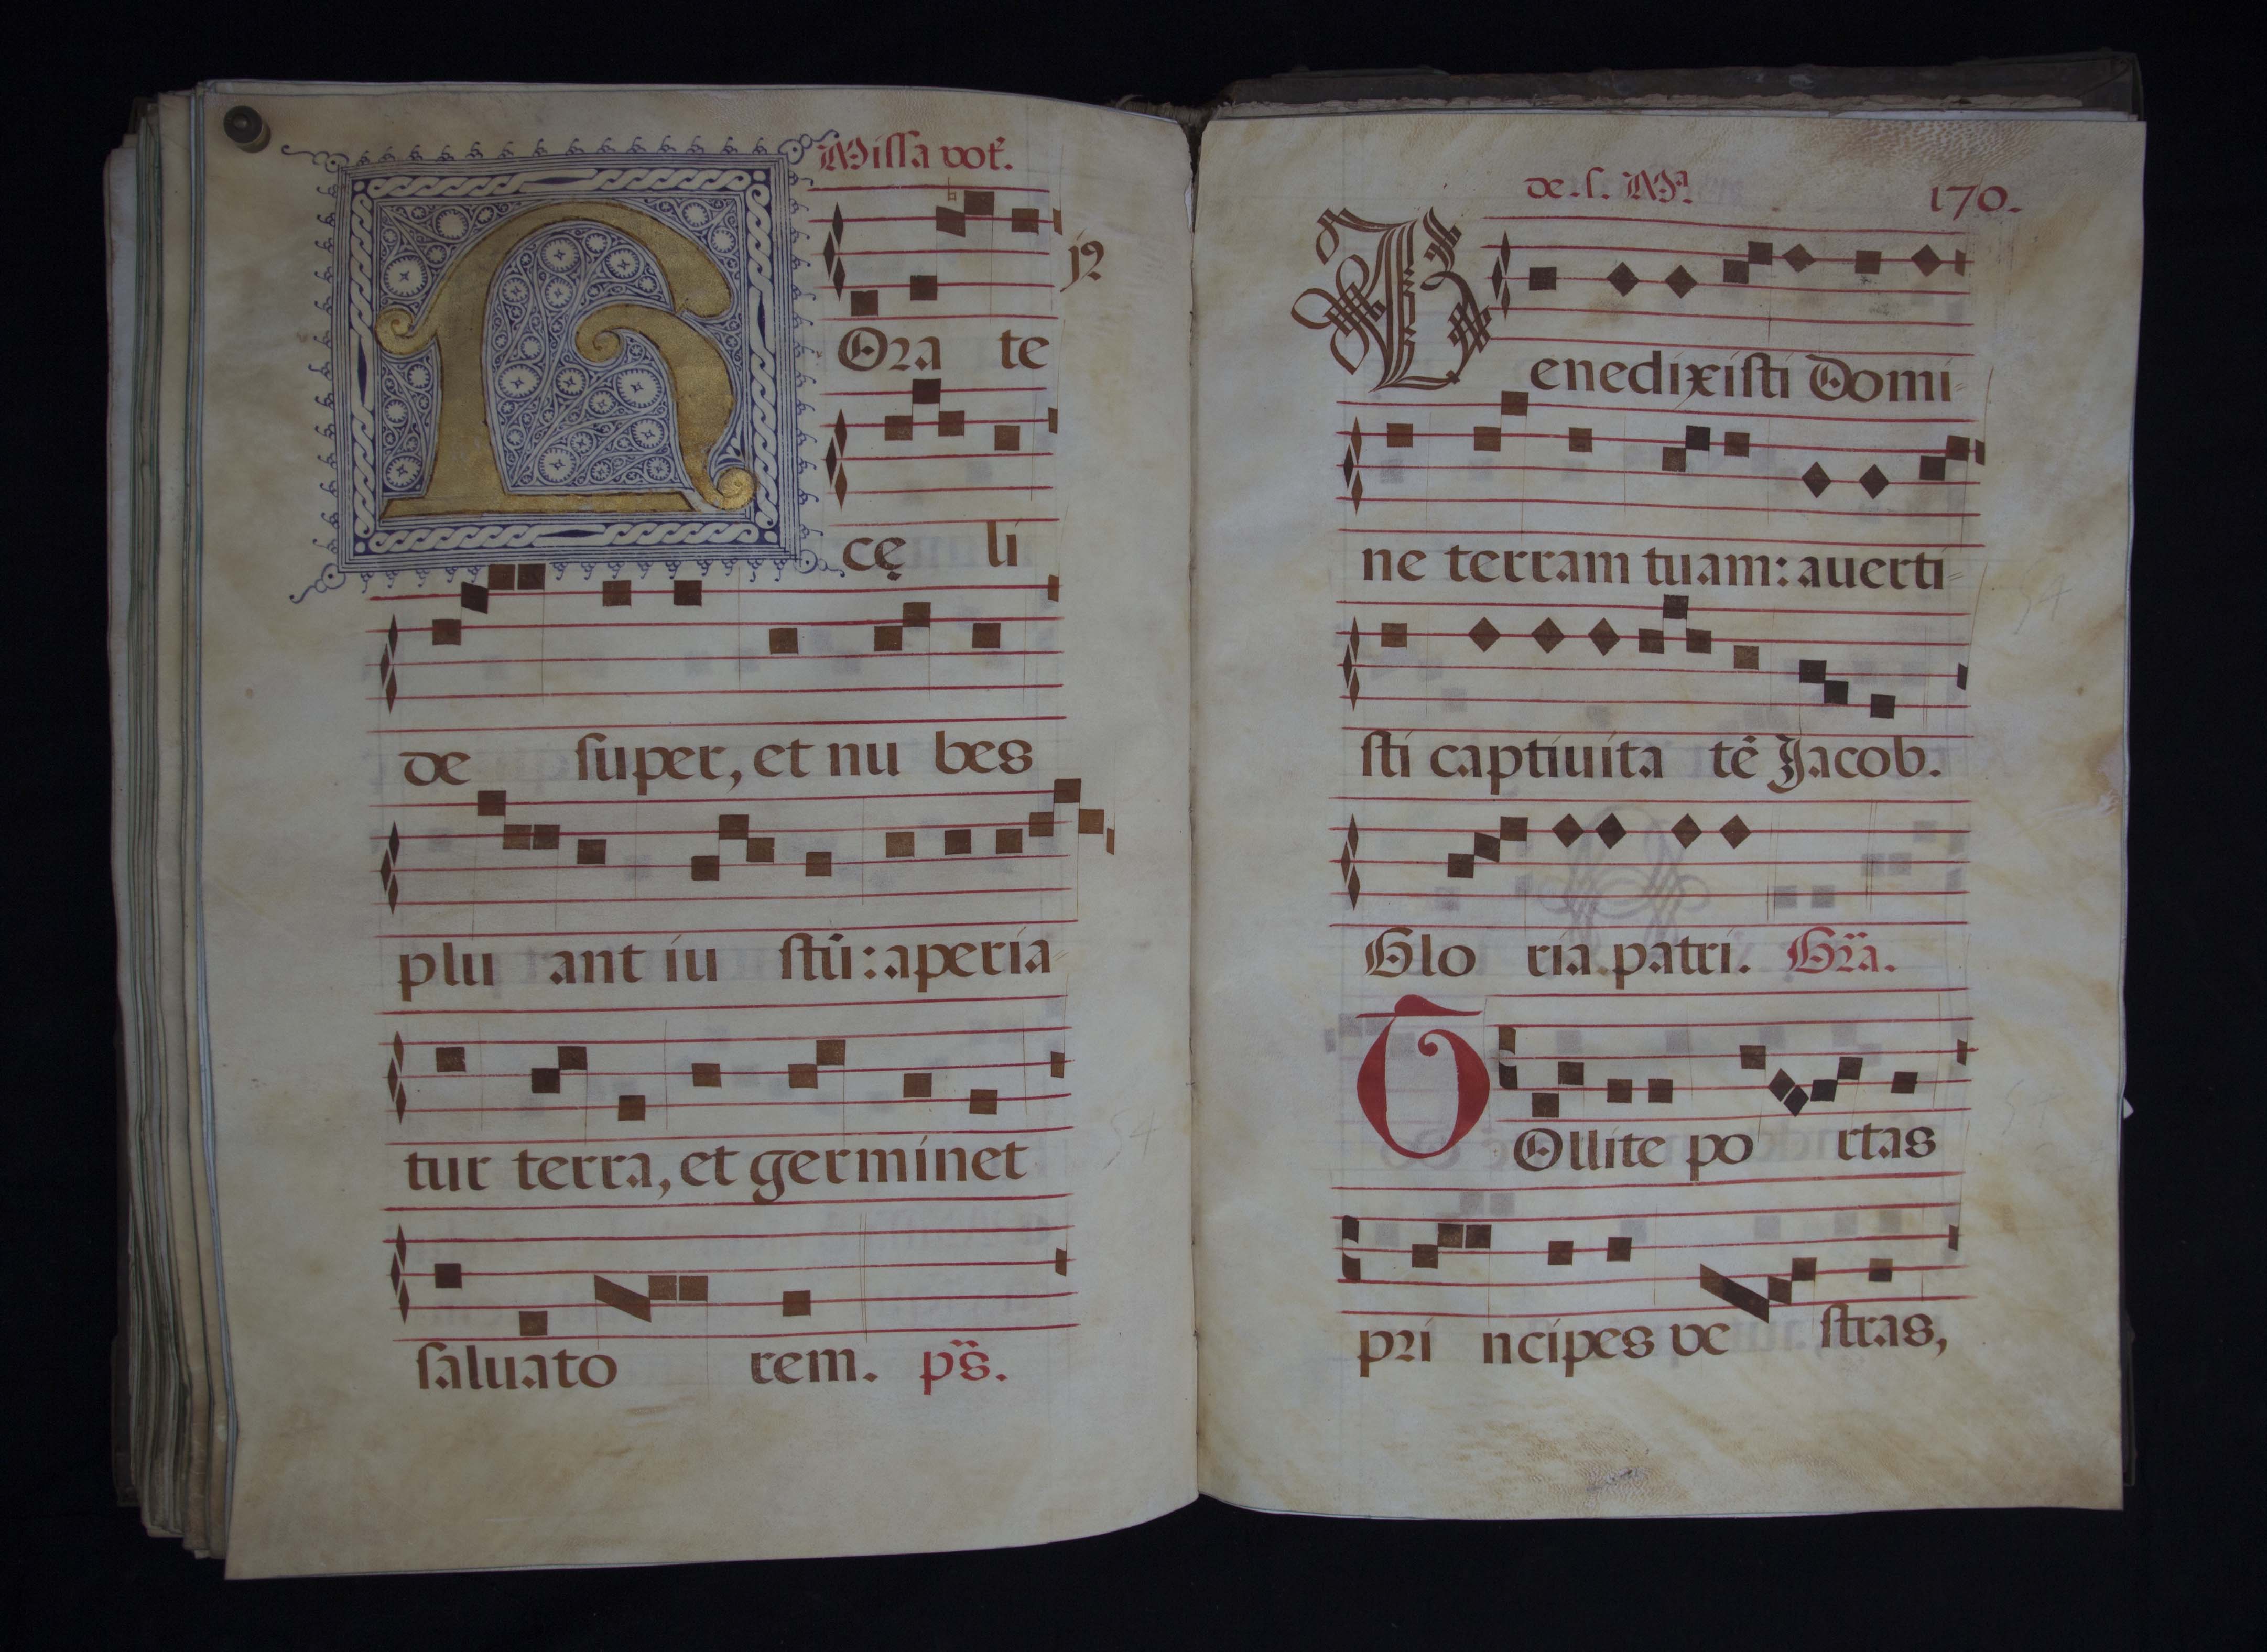 Missa vot.
R Orate
jꝰ
cę li
de super, et nu bes
plu ant iu stū: aperia-
tur terra, et germinet
saluato rem. ps.
de. s. Mª. 170.
Benedixisti Domi-
ne terram tuam: auerti-
sti captiuita tē Jacob.
Glo ria patri. Gra.
TOllite po rtas
pri ncipes ve stras,